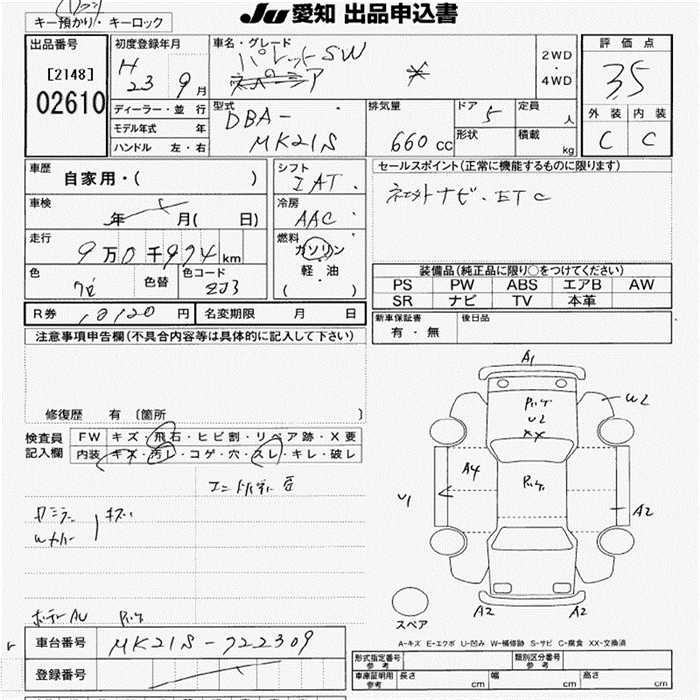 Ju 愛知 出品申込書
キー預かり・キーロック
出品番号
[2148]
02610
初度登録年月
H 23 9月
ディーラー・並 行
モデル年式 年
ハンドル 左・右
車名・グレード
パレットSW
2WD
4WD
型式
DBA-
MK21S
排気量
660 cc
ドア
5
形状
定員
人
積載
kg
評価点
3.5
外装 内装
C C
車歴
自家用・( )
車検
年 月( 日)
走行
9万0千974km
色
色替
色コード
ZJ3
シフト
IAT
冷房
AAC
燃料
ガソリン
軽・油
( )
R券
円
名変期限 月 日
セールスポイント(正常に機能するものに限ります)
ナビ・ETC
装備品(純正品に限り○をつけてください)
PS PW ABS エアB AW
SR ナビ TV 本革
新車保証書
有・無
後日品
注意事項申告欄(不具合内容等は具体的に記入して下さい)
修復歴 有〔箇所 〕
検査員
記入欄
FW キズ・飛石・ヒビ割・リペア跡・X要
内装 キズ・汚レ・コゲ・穴・スレ・キレ・破レ
A1
U2
XX
W2
A4
U1
A2
A2
A2
スペア
A-キズ E-エクボ U-凹み W-補修跡 S-サビ C-腐食 XX-交換済
車台番号
MK21S-722309
登録番号
形式指定番号
参考
類別区分番号
参考
車庫証明用
参考
長さ cm
幅 cm
高さ cm